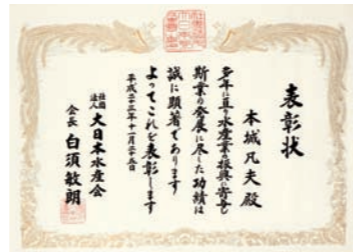 表彰状
本城凡夫殿
多年に亘り水産業の振興に寄与し
斯業の発展に尽した功績は
誠に顕著であります
よってこれを表彰します
平成二十三年十一月二十五日
社団法人 大日本水産会
会長 白須敏朗